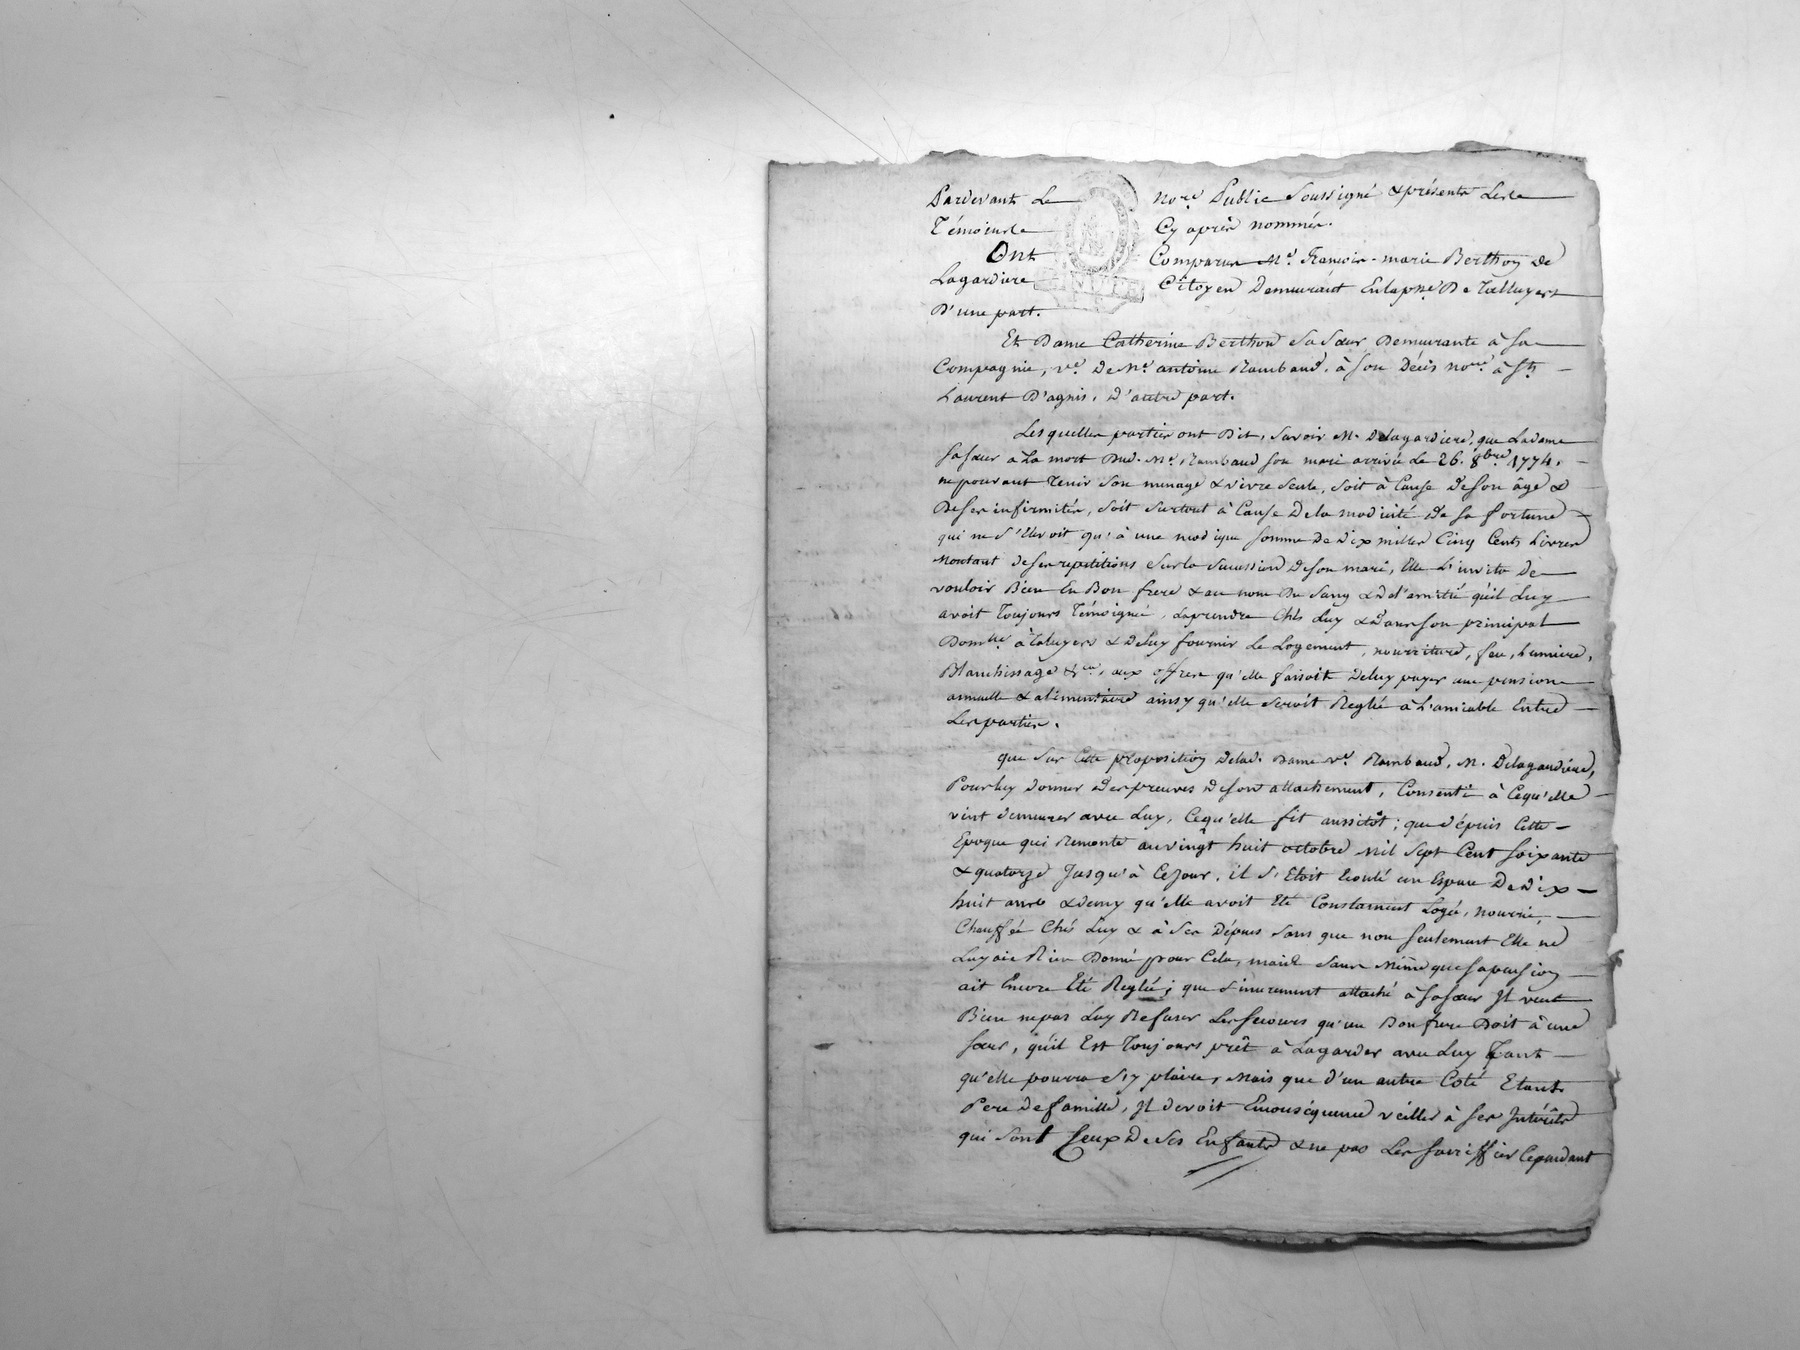 Pardevant Le Nore. Public Soussigné & présents Les
Témoins Cy après nommés.
Ont Comparus Me. François-marie Berthon de
Lagardiere Citoyen Demeurant En la psse. De Talluyers
D'une part.
Et Dame Catherine Berthon Sa Sœur Demeurante à Sa
Compagnie, ve. De Me. antoine Rambaud, à son Décès nore. à St.
Laurent D'agnis, D'autre part.
Lesquelles parties ont Dit, Savoir M. Delagardiere, que La dame
Sa sœur à La mort Dud. Me. Rambaud son mari arrivée Le 26. 8bre. 1774,
ne pouvant Tenir Son menage & vivre Seule, Soit à Cause de son âge &
De ses infirmités, Soit Surtout à Cause De la modicité de sa fortune
qui ne S'Elevoit qu'à une modique somme De Dix milles Cinq Cents Livres
Montant de ses repetitions Sur la Succession De son mari, Elle L'invita De
vouloir Bien En Bon frere & au nom Du Sang & de l'amitié qu'il Luy
avoit Toujours Témoigné, La prendre Chés Luy & dans son principal
Domlle. à Taluyers & De Luy fournir Le Logement, nourriture, feu, Lumiere,
Blanchissage &ca, aux offres qu'elle faisoit De luy payer une pension
annuelle & alimentaire ainsy qu'elle Seroit Reglée à L'amiable Entre
Les parties.
que Sur Cette proposition De lad. Dame ve. Rambaud, M. Delagardiere,
Pour luy donner Des preuves De son attachement, Consentit à Ce qu'elle
vint demeurer avec Luy, Ce qu'elle fit aussitôt; que dépuis Cette
Epoque qui Remonte au vingt huit octobre Mil Sept Cent soixante
& quatorze Jusqu'à Ce Jour, il S'Etoit Ecoulé un Espace De Dix
huit ans & demy qu'elle avoit Eté Constament Logée, nourrie,
Chauffée Chés Luy & à Ses Dépens Sans que non seulement Elle ne
Luy aie Rien Donné pour Cela, mais Sans Même que sa pension
ait Encore Eté Reglée; que Sincerement attaché à sa sœur Il veut
Bien ne pas Luy Refuser Les secours qu'un Bon frere Doit à une
sœur, qu'il Est Toujours prêt à La garder avec Luy Tant
qu'elle pourra S'y plaire, Mais que d'un autre Coté Etant
Pere de famille, Il devoit En conséquence veiller à ses Intérêts
qui Sont Ceux De Ses Enfants & ne pas Les sacriffier Cependant